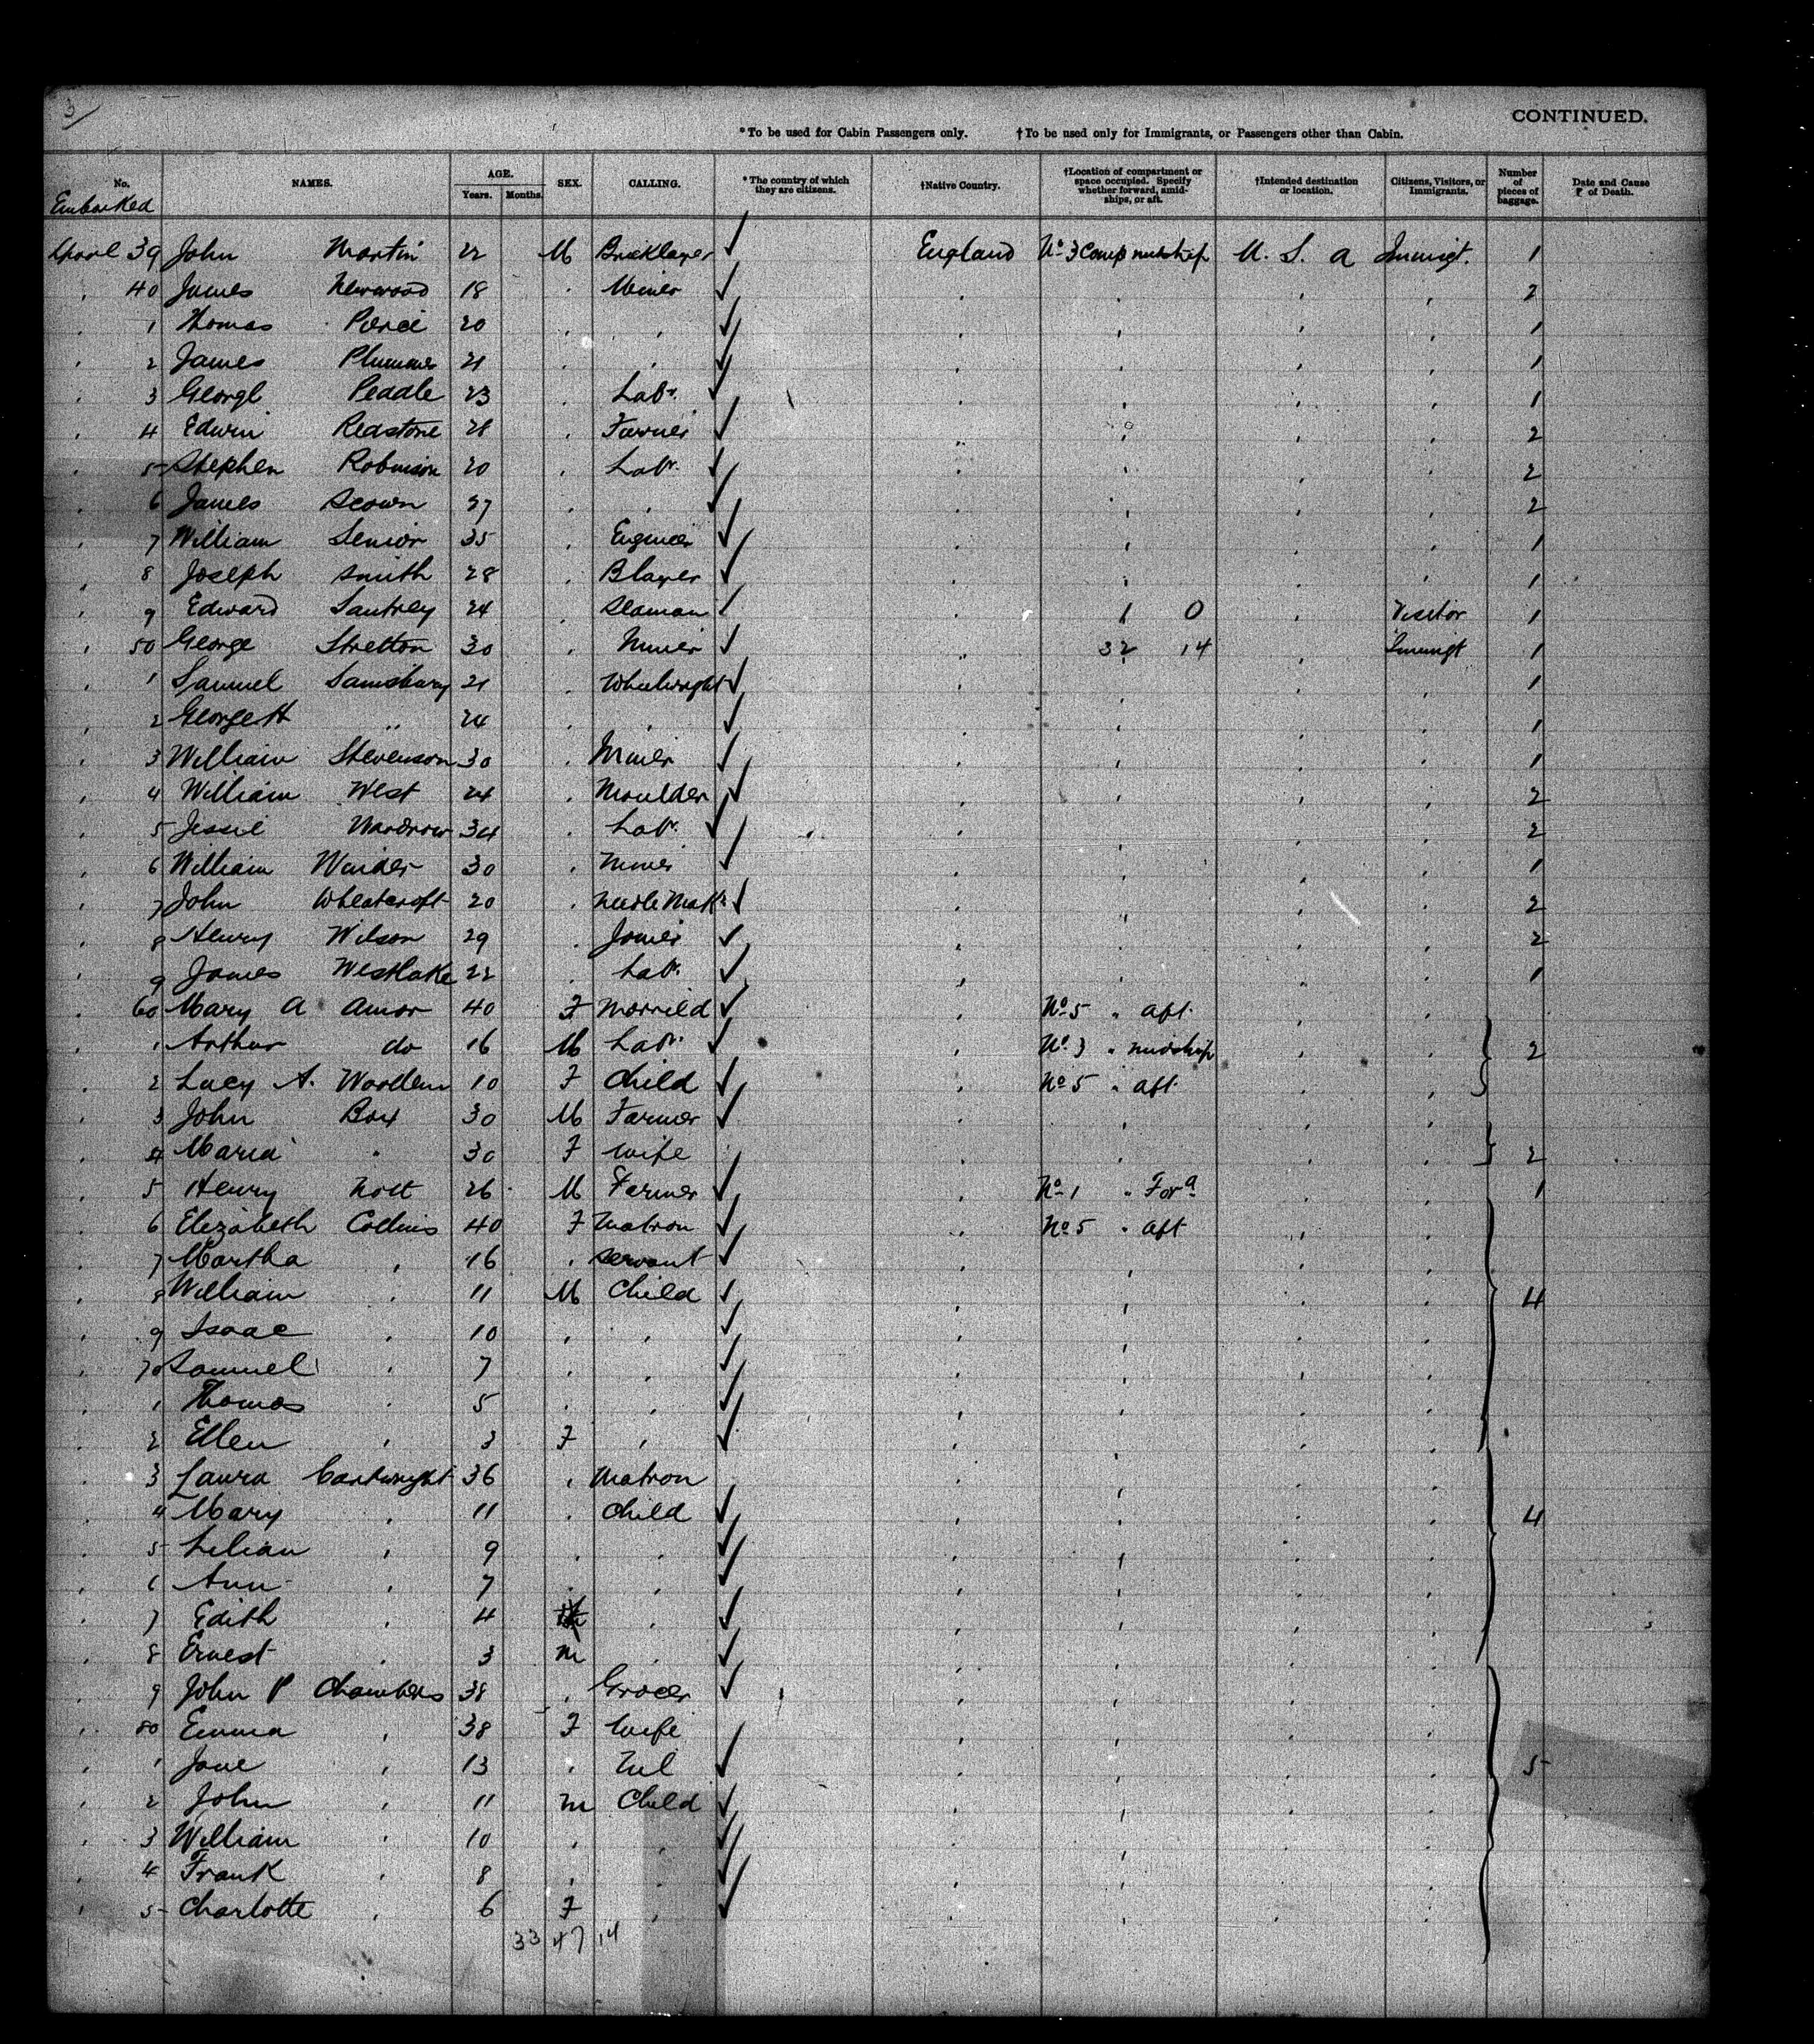 3
CONTINUED.
*To be used for Cabin Passengers only. †To be used only for Immigrants, or Passengers other than Cabin.
No. NAMES. AGE. Years. Months. SEX. CALLING. *The country of which they are citizens. †Native Country. †Location of compartment or space occupied. Specify whether forward, amidships, or aft. †Intended destination or location. Citizens, Visitors, or Immigrants. Number of pieces of baggage. Date and Cause of Death.
Embarked
April 39 John Martin 22 M Bricklayer ✓ England No 3 Comp midship U. S. A Immigt. 1
40 James 18 Miner ✓ 2
1 Thomas Pierce 20 ✓ 1
2 James Plummer 21 ✓ 1
3 George Peddle 23 Labr. ✓ 1
4 Edwin Redstone 28 Farmer ✓ 2
5 Stephen Robinson 20 Labr. ✓ 2
6 James Scown 27 ✓ 2
7 William Senior 35 Engineer ✓ 1
8 Joseph Smith 28 Blayer ✓ 1
9 Edward 24 Seaman ✓ 1 0 Visitor 1
50 George Stretton 30 Miner ✓ 32 14 Immigt 1
1 Samuel Sainsbury 21 Wheelwright ✓ 1
2 George H " 24 ✓ 1
3 William Stevenson 30 Miner ✓ 1
4 William West 24 Moulder ✓ 2
5 Jessie 34 Labr. ✓ 2
6 William Winder 30 Miner ✓ 1
7 John Wheatcroft 20 Needle Makr ✓ 2
8 Henry Wilson 29 Joiner ✓ 2
9 James Westlake 22 Labr. ✓ 1
60 Mary A Amor 40 F Married ✓ No 5 " aft.
1 Arthur do 16 M Labr. ✓ No. 3 " midship 2
2 Lucy A. 10 F Child ✓ No 5 " aft.
3 John Box 30 M Farmer ✓
4 Maria " 30 F Wife 2
5 Henry Nott 26 M Farmer ✓ No 1 " Ford 1
6 Elizabeth Collins 40 F Matron ✓ No 5 " aft
7 Martha " 16 " Servant ✓
8 William " 11 M Child ✓ 4
9 Isaac " 10 " " ✓
70 Samuel " 7 " " ✓
1 Thomas " 5 " " ✓
2 Ellen " 3 F " ✓
3 Laura Cartwright 36 " Matron
4 Mary " 11 " Child ✓ 4
5 Lilian " 9 " " ✓
6 Ann " 7 " " ✓
7 Edith " 4 " ✓
8 Ernest " 3 M " ✓
9 John P Chambers 38 " Grocer ✓
80 Emma " 38 F Wife
1 Jane " 13 " Nil ✓ 5
2 John " 11 M Child ✓
3 William " 10 " " ✓
4 Frank " 8 " " ✓
5 Charlotte " 6 F " ✓
33 47 14